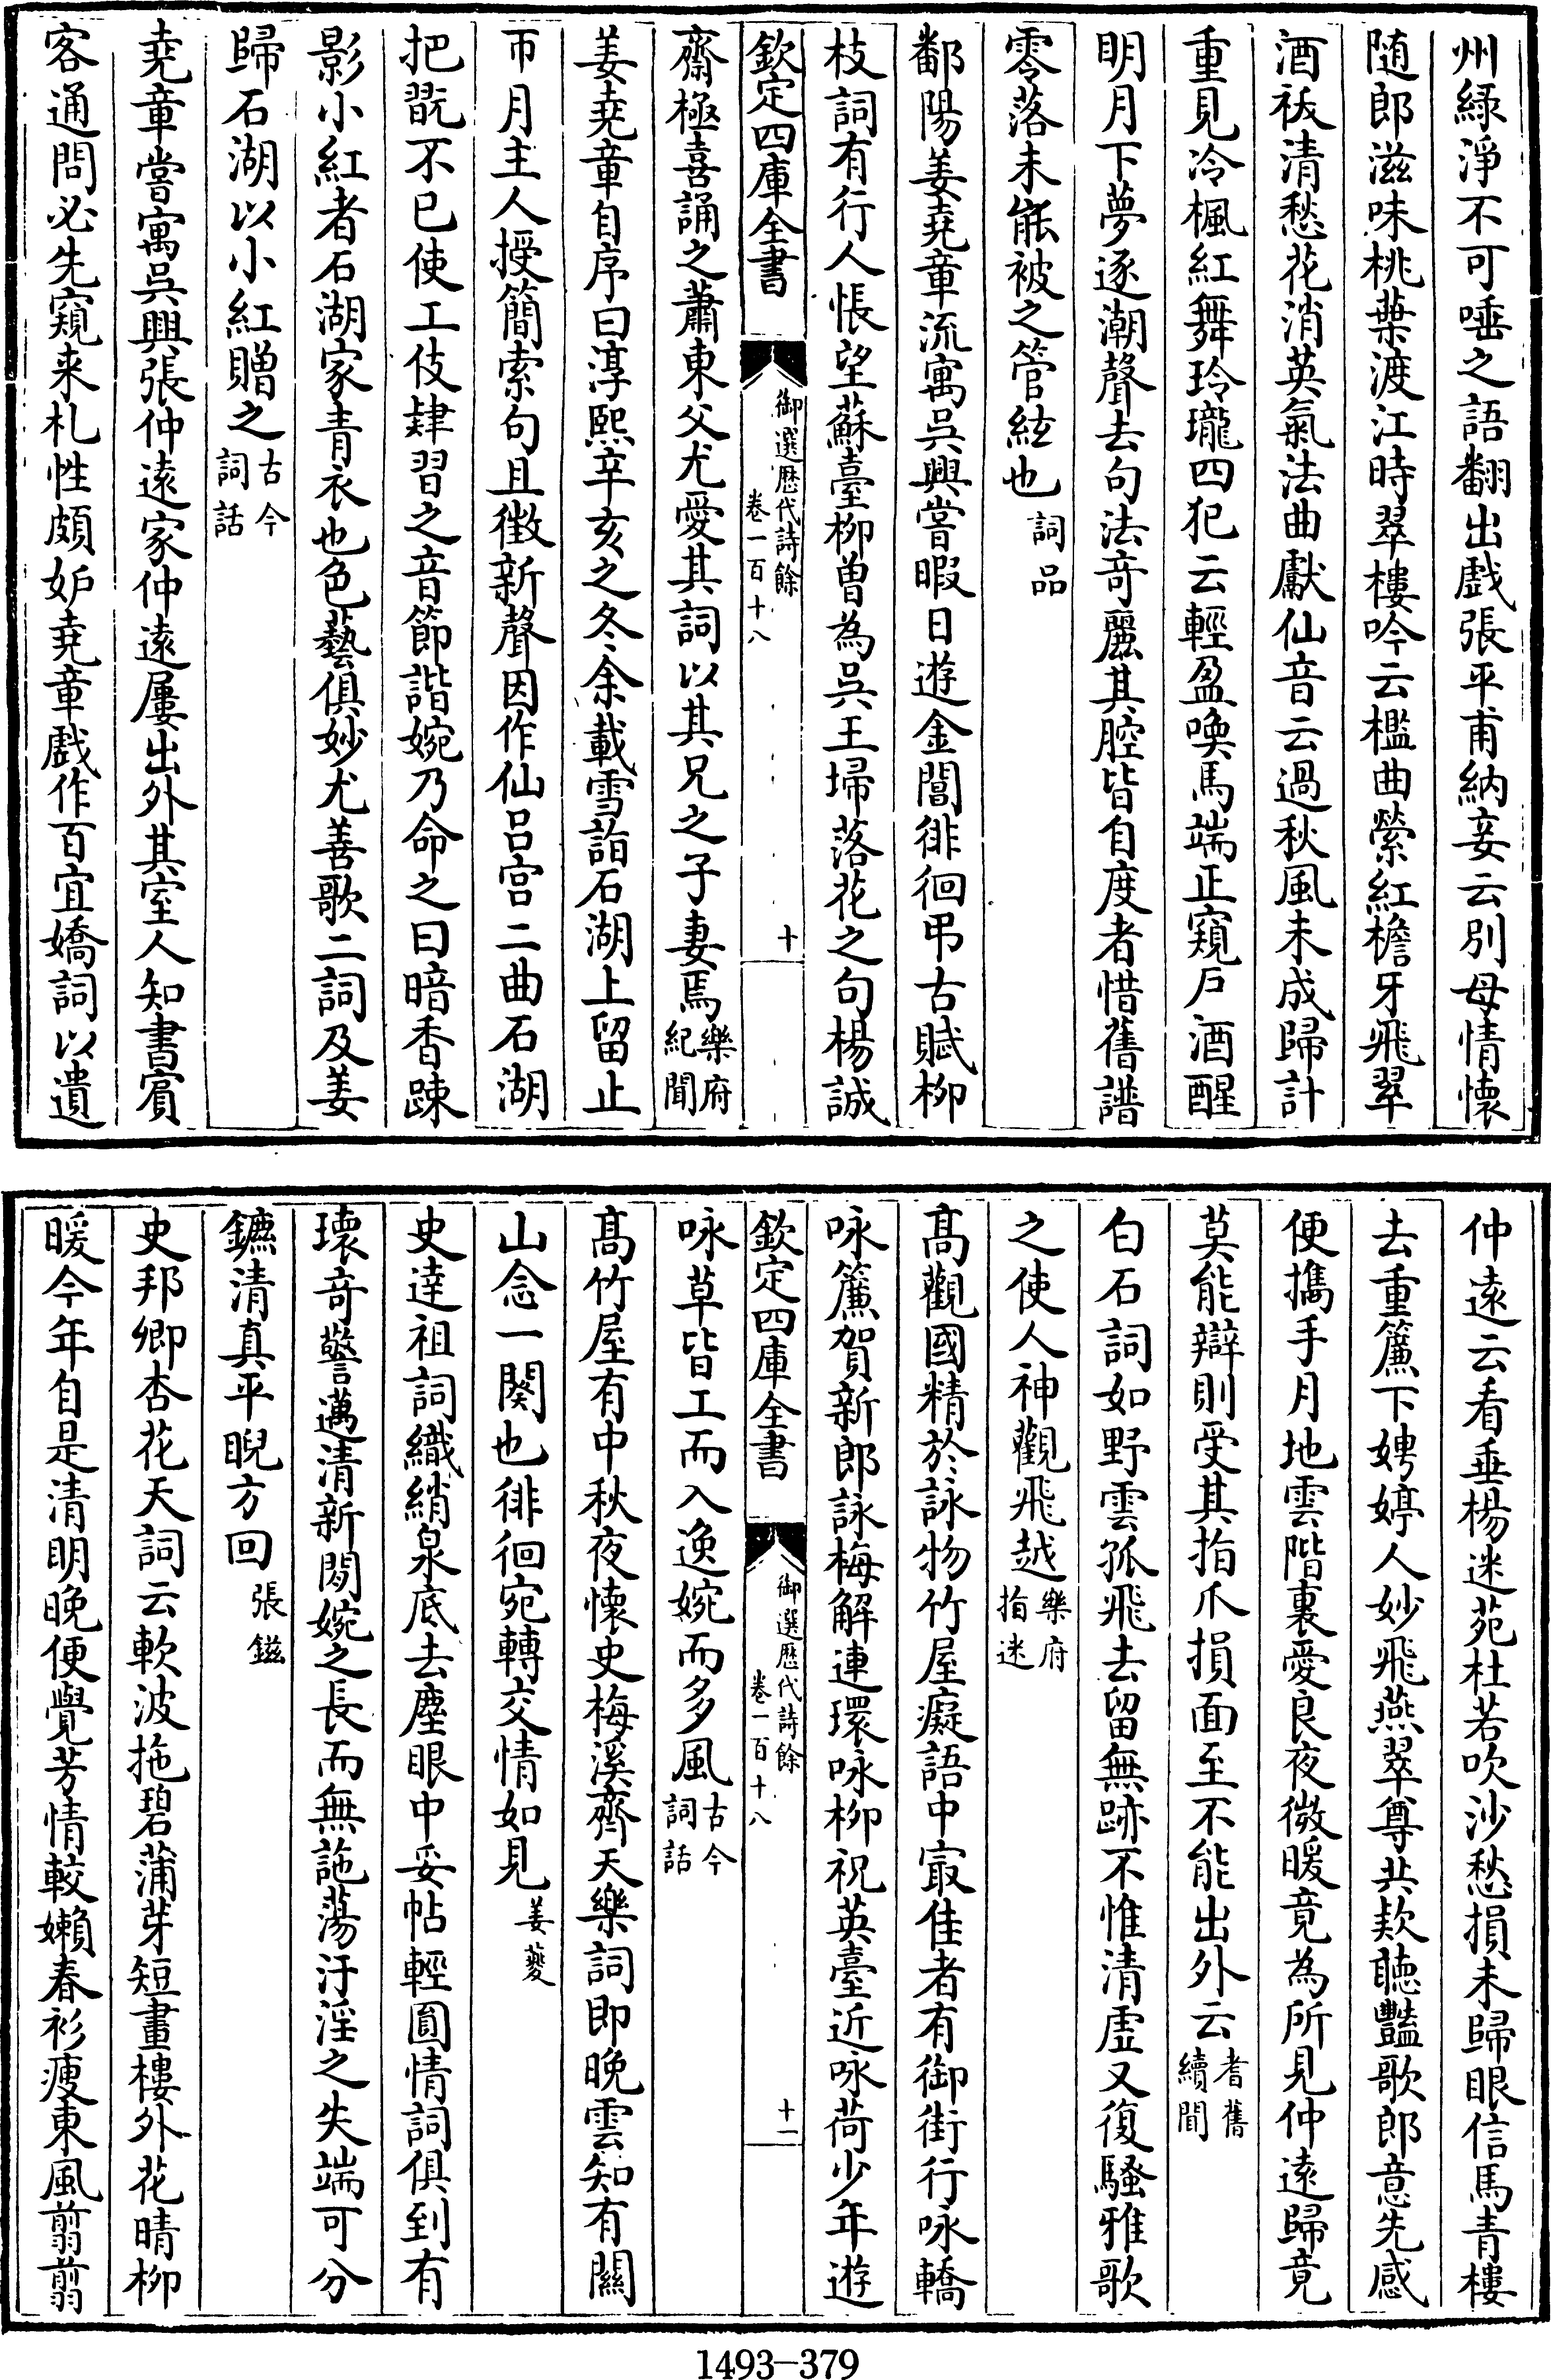 州綠淨不可唾之語翻出戲張平甫納妾云別母情懷
随郎滋味桃葉渡江時翠樓吟云檻曲縈紅檐牙飛翠
酒祓清愁花消英氣法曲獻仙音云過秋風未成歸計
重見冷楓紅舞玲瓏四犯云輕盈喚馬端正窺戶酒醒
明月下夢逐潮聲去句法竒麗其腔皆自度者惜舊譜
零落未能被之管絃也詞品
鄱陽姜堯章流寓吳興嘗暇日遊金閶徘徊弔古賦柳
枝詞有行人悵望蘇臺柳曾為吳王埽落花之句楊誠
欽定四庫全書 御選歷代詩餘 卷一百十八 十
齋極喜誦之蕭東父尤愛其詞以其兄之子妻焉樂府紀聞
姜堯章自序曰淳熙辛亥之冬余載雪詣石湖上留止
帀月主人授簡索句且徴新聲因作仙呂宮二曲石湖
把翫不已使工伎肄習之音節諧婉乃命之曰暗香踈
影小紅者石湖家青衣也色藝俱妙尤善歌二詞及姜
歸石湖以小紅贈之古今詞話
堯章嘗寓吳興張仲遠家仲遠屢出外其室人知書賓
客通問必先窺来札性頗妒堯章戲作百宜嬌詞以遺
仲遠云看垂楊迷苑杜若吹沙愁損未歸眼信馬青樓
去重簾下娉婷人妙飛燕翠尊共欵聽豔歌郎意先感
便擕手月地雲階裏愛良夜微暖竟為所見仲遠歸竟
莫能辯則受其指爪損面至不能出外云耆舊續聞
白石詞如野雲孤飛去留無跡不惟清虛又復騷雅歌
之使人神觀飛越樂府指迷
髙觀國精於詠物竹屋癡語中㝡佳者有御街行咏轎
咏簾賀新郎詠梅解連環咏柳祝英臺近咏荷少年遊
欽定四庫全書 御選歷代詩餘 卷一百十八 十一
咏草皆工而入逸婉而多風古今詞話
髙竹屋有中秋夜懷史梅溪齊天樂詞即晚雲知有關
山念一闋也徘徊宛轉交情如見姜夔
史逹祖詞織綃泉底去塵眼中妥帖輕圓情詞俱到有
瓌竒警邁清新閒婉之長而無訑蕩汙淫之失端可分
鑣清真平睨方回張鎡
史邦卿杏花天詞云軟波拖碧蒲芽短畫樓外花晴柳
暖今年自是清明晚便覺芳情較嬾春衫瘦東風翦翦
1493-379